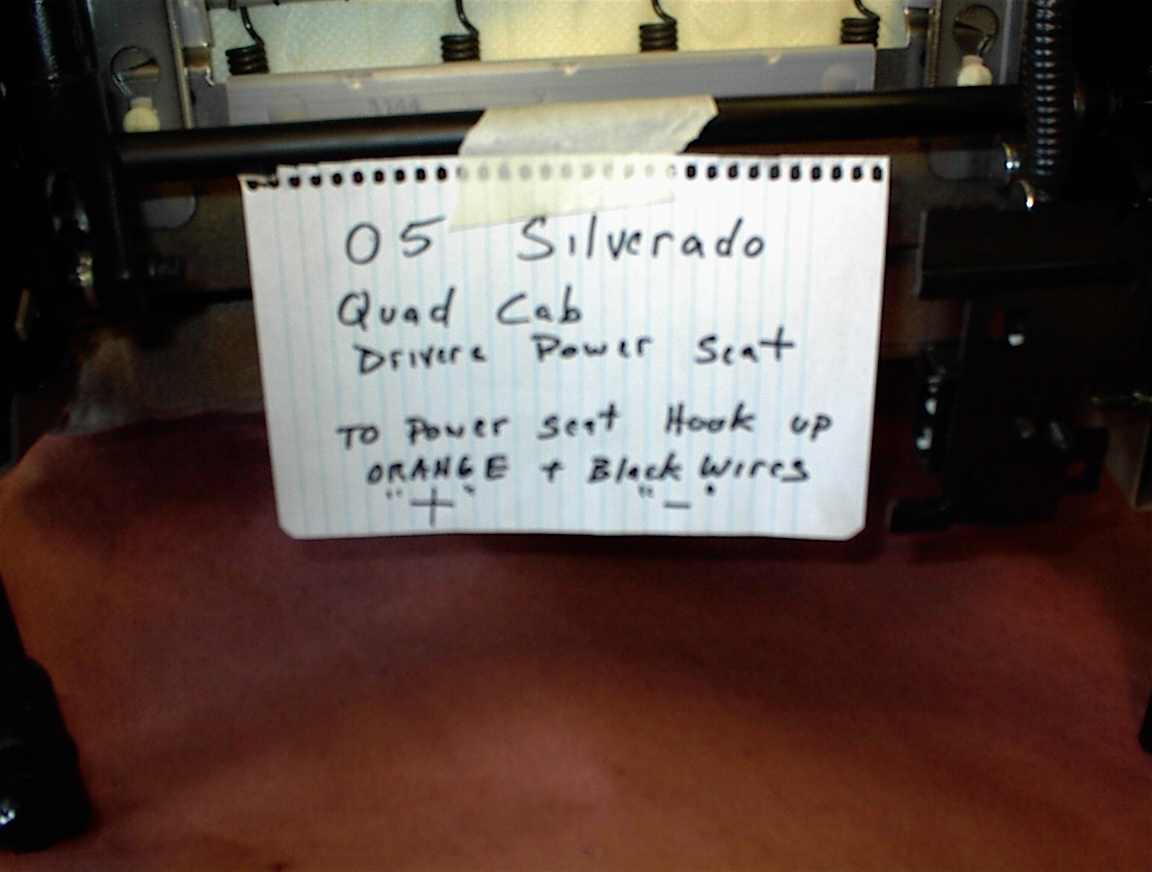 3144
05 Silverado
Quad Cab
Drivers Power Seat
To Power seat Hook up
ORANGE + Black Wires
"+" "-"